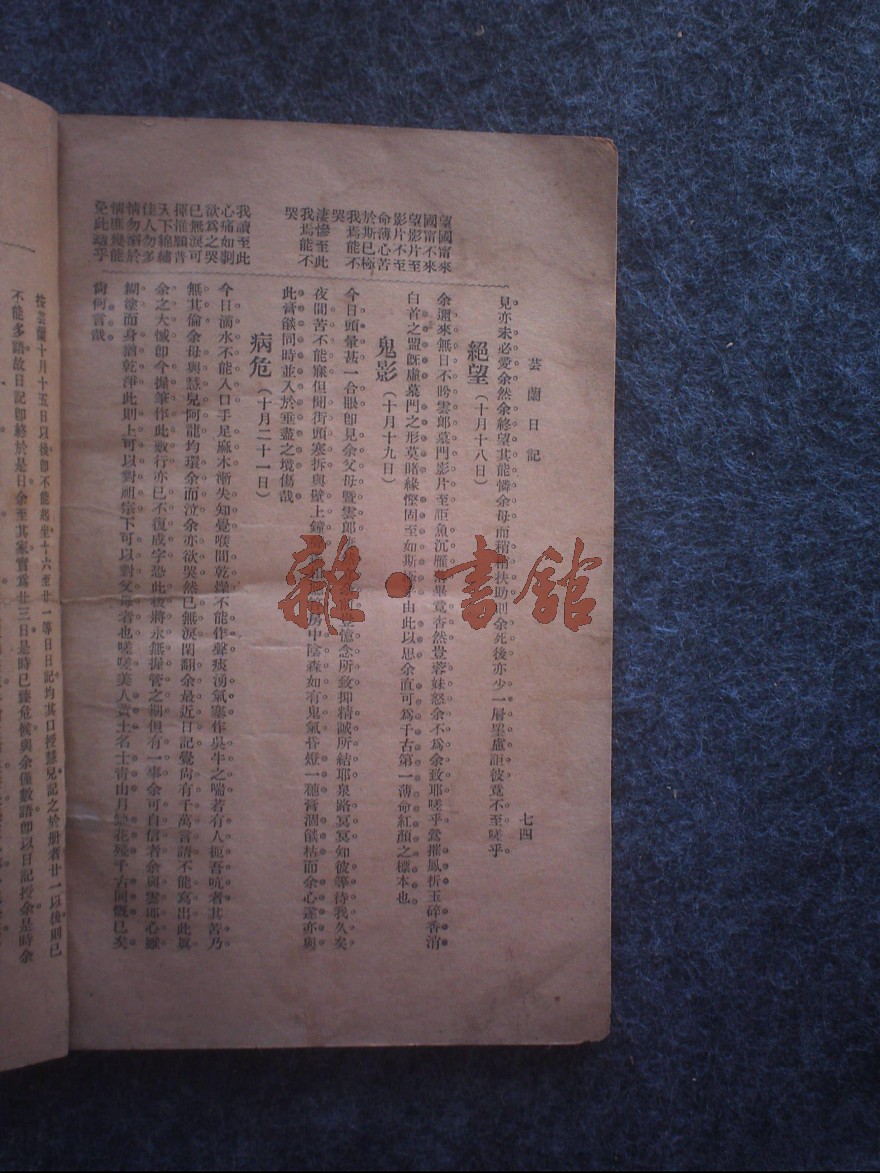 芸蘭日記
七四
見亦未必愛余然余終望其能憐余母而稍由扶助則余死後亦少一層罣慮詎彼竟不至嗟乎
絕望（十月十八日）
余邇來無日不吟雲郎墓門影片至詎魚沉雁畢竟杳然豈蓉妹怒余不為余致耶嗟乎鸞摧鳳折玉碎香消
白首之盟旣虛墓門之形莫睹緣慳固至如斯乎由此以思余直可為千古第一薄命紅顏之標本也
鬼影（十月十九日）
今日頭暈甚一合眼卽見余父母曁雲郎憶念所致抑精誠所結耶泉路冥冥知彼等待我久矣
夜間苦不能寐但聞街頭寒柝與壁上鐘房中陰森如有鬼氣昏燈一穗膏涸燄枯而余心遂亦與
此膏燄同時並入於垂盡之境傷哉
病危（十月二十一日）
今日滴水不能入口手足麻木漸失知覺喉間乾燥不能作聲痰湧氣塞作吳牛之喘若有人扼吾吭者其苦乃
無其倫余母與慧兒阿龍均環余而泣余亦欲哭然已無淚因翻余最近日記覺尙有千萬言語不能寫出此眞
余之大憾卽今握筆作此數行亦已不復成字恐此後將永無握管之期但有一事余可自信者余與雲郎心雖
糊塗而身猶乾淨此則上可以對祖宗下可以對父母者也嗟嗟美人黃土名士靑山月缺花殘千古同慨已矣
尙何言哉
望國甯來
國甯不來
望影片至
影片不至
命薄心苦
於斯已極
我焉能不
哭
淒慘至此
我焉能不
哭
我讀至此
心痛如割
欲為之哭
已無淚可
揮惟願普
天下錦繡
佳人勿多
情勿溺於
情庶幾能
免此劫乎
按芸蘭十月十五日以後卽不能起坐十六至廿一等日日記均其口授慧兒記之於册者廿一以後則已
不能多語故日記卽終於是日余至其家實爲廿三日是時已臻危候與余僅數語卽以日記授余是時余